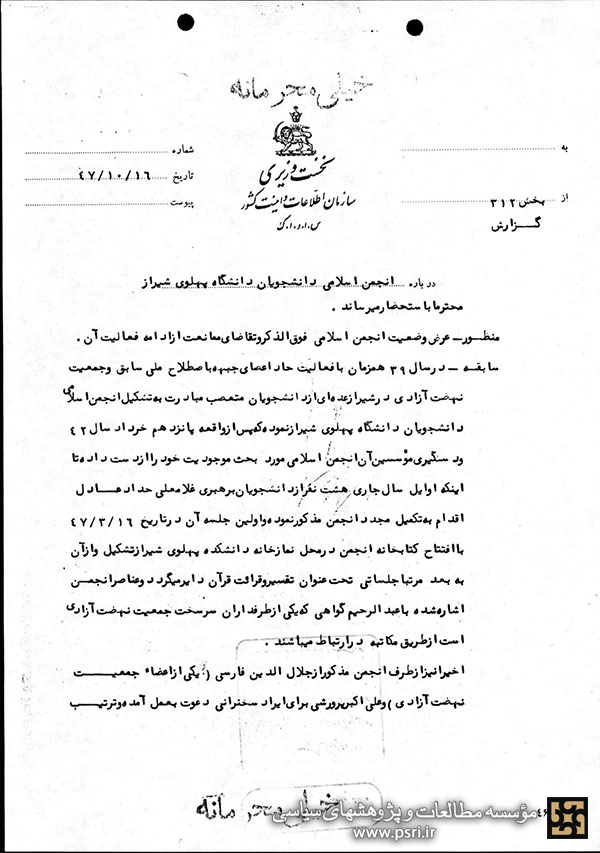 خیلی محرمانه
نخست وزیری
سازمان اطلاعات و امنیت کشور
س.ا.و.ا.ک
به
از بخش ۳۱۲
گزارش
شماره
تاریخ ۴۷/۱۰/۱۶
پیوست
درباره انجمن اسلامی دانشجویان دانشگاه پهلوی شیراز
محترما باستحضار میرساند .
منظور ـ عرض وضعیت انجمن اسلامی فوق الذکر و تقاضای ممانعت از ادامه فعالیت آن .
سابقه ـ در سال ۳۹ همزمان با فعالیت حاد اعضای جبهه باصطلاح ملی سابق و جمعیت
نهضت آزادی در شیراز عده ای از دانشجویان متعصب مبادرت به تشکیل انجمن اسلامی
دانشجویان دانشگاه پهلوی شیراز نموده که پس از واقعه پانزدهم خرداد سال ۴۲
و دستگیری مؤسسین آن انجمن اسلامی مورد بحث موجودیت خود را از دست داده تا
اینکه اوایل سال جاری هشت نفر از دانشجویان برهبری غلامعلی حداد عادل
اقدام به تکمیل مجدد انجمن مذکور نموده و اولین جلسه آن در تاریخ ۴۷/۳/۱۶
با افتتاح کتابخانه انجمن در محل نمازخانه دانشکده پهلوی شیراز تشکیل و از آن
به بعد مرتبا جلساتی تحت عنوان تفسیر و قرائت قرآن دایر میگردد و عناصر انجمن
اشاره شده با عبدالرحیم گواهی که یکی از طرفداران سرسخت جمعیت نهضت آزادی
است از طریق مکاتبه در ارتباط میباشند .
اخیرا نیز از طرف انجمن مذکور از جلال الدین فارسی (یکی از اعضاء جمعیت
نهضت آزادی) و علی اکبر پرورشی برای ایراد سخنرانی دعوت بعمل آمده و ترتیب
خیلی محرمانه
موسسه مطالعات و پژوهشهای سیاسی
www.psri.ir